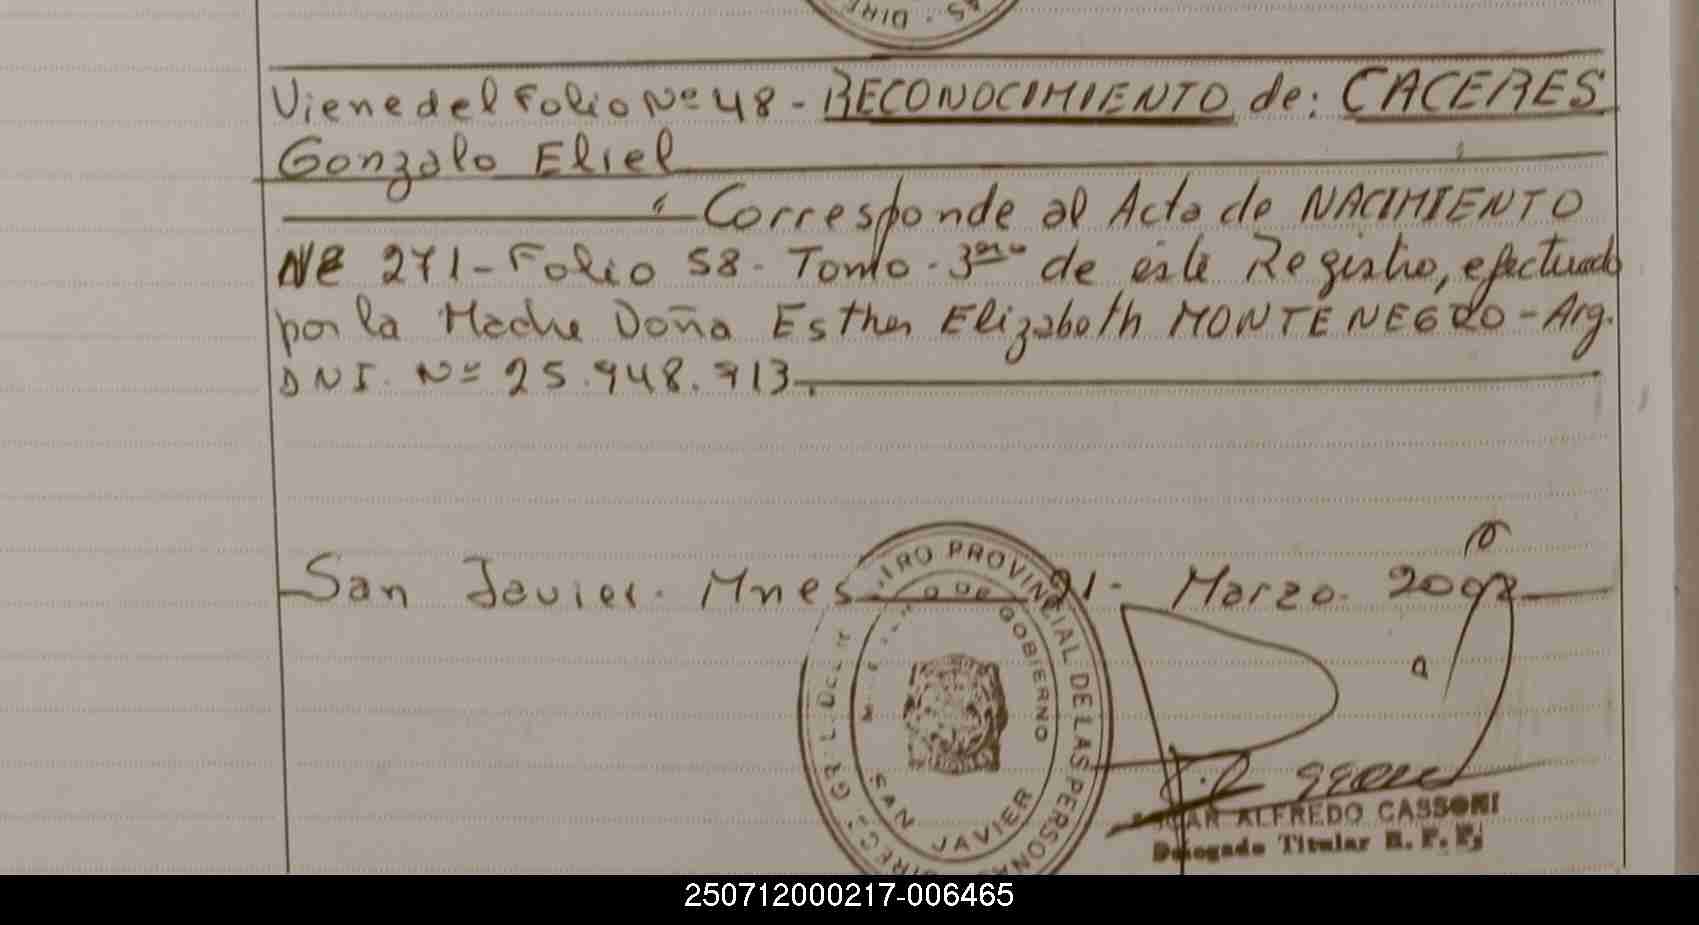 AS · DIRE
Viene del Folio Nº 48 - RECONOCIMIENTO de: CACERES
Gonzalo Eliel
" Corresponde al Acta de NACIMIENTO
Nº 271 - Folio 58 - Tomo - 3ero de este Registro, efectuado
por la Madre Doña Esther Elizabeth MONTENEGRO - Arg.
DNI. Nº 25.948.913.
San Javier. Mnes 21 - Marzo - 2002
PROVINCIAL DE LAS PERSONAS
DE GOBIERNO
SAN JAVIER
ALFREDO CASSONI
Delegado Titular R. P. P.
250712000217-006465